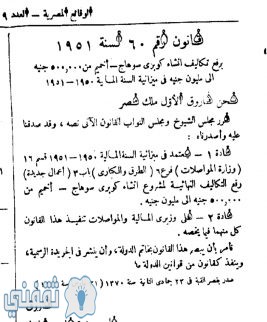 الوقائع المصرية - العدد ٩
قانون رقم ٦٠ لسنة ١٩٥١
برفع تكاليف انشاء كوبرى سوهاج - أخميم من ٥٠٠,٠٠٠ جنيه
الى مليون جنيه فى ميزانية السنة المالية ١٩٥٠ - ١٩٥١
نحن فاروق الأول ملك مصر
قرر مجلس الشيوخ ومجلس النواب القانون الآتى نصه، وقد صدقنا
عليه وأصدرناه:
مادة ١ - يعتمد فى ميزانية السنة المالية ١٩٥٠ - ١٩٥١ قسم ١٦
(وزارة المواصلات) فرع ٦ (الطرق والكبارى) باب ٣ (أعمال جديدة)
رفع التكاليف النهائية لمشروع انشاء كوبرى سوهاج - أخميم من
٥٠٠,٠٠٠ جنيه الى مليون جنيه.
مادة ٢ - على وزيرى المالية والمواصلات تنفيذ هذا القانون
كل منهما فيما يخصه.
نأمر بأن يبصم هذا القانون بخاتم الدولة، وأن ينشر فى الجريدة الرسمية،
وينفذ كقانون من قوانين الدولة ما
صدر بقصر القبة فى ٢٣ جمادى الثانية سنة ١٣٧٠ (٣١
ثقفني